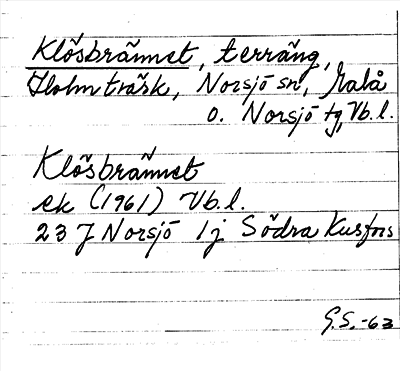 Klösbrännet, terräng,
Holmträsk, Norsjö sn, Malå
o. Norsjö tg, Vb.l.
Klösbrännet
ek (1961) Vb.l.
23 J Norsjö 1j Södra Kusfors
G.S. -63